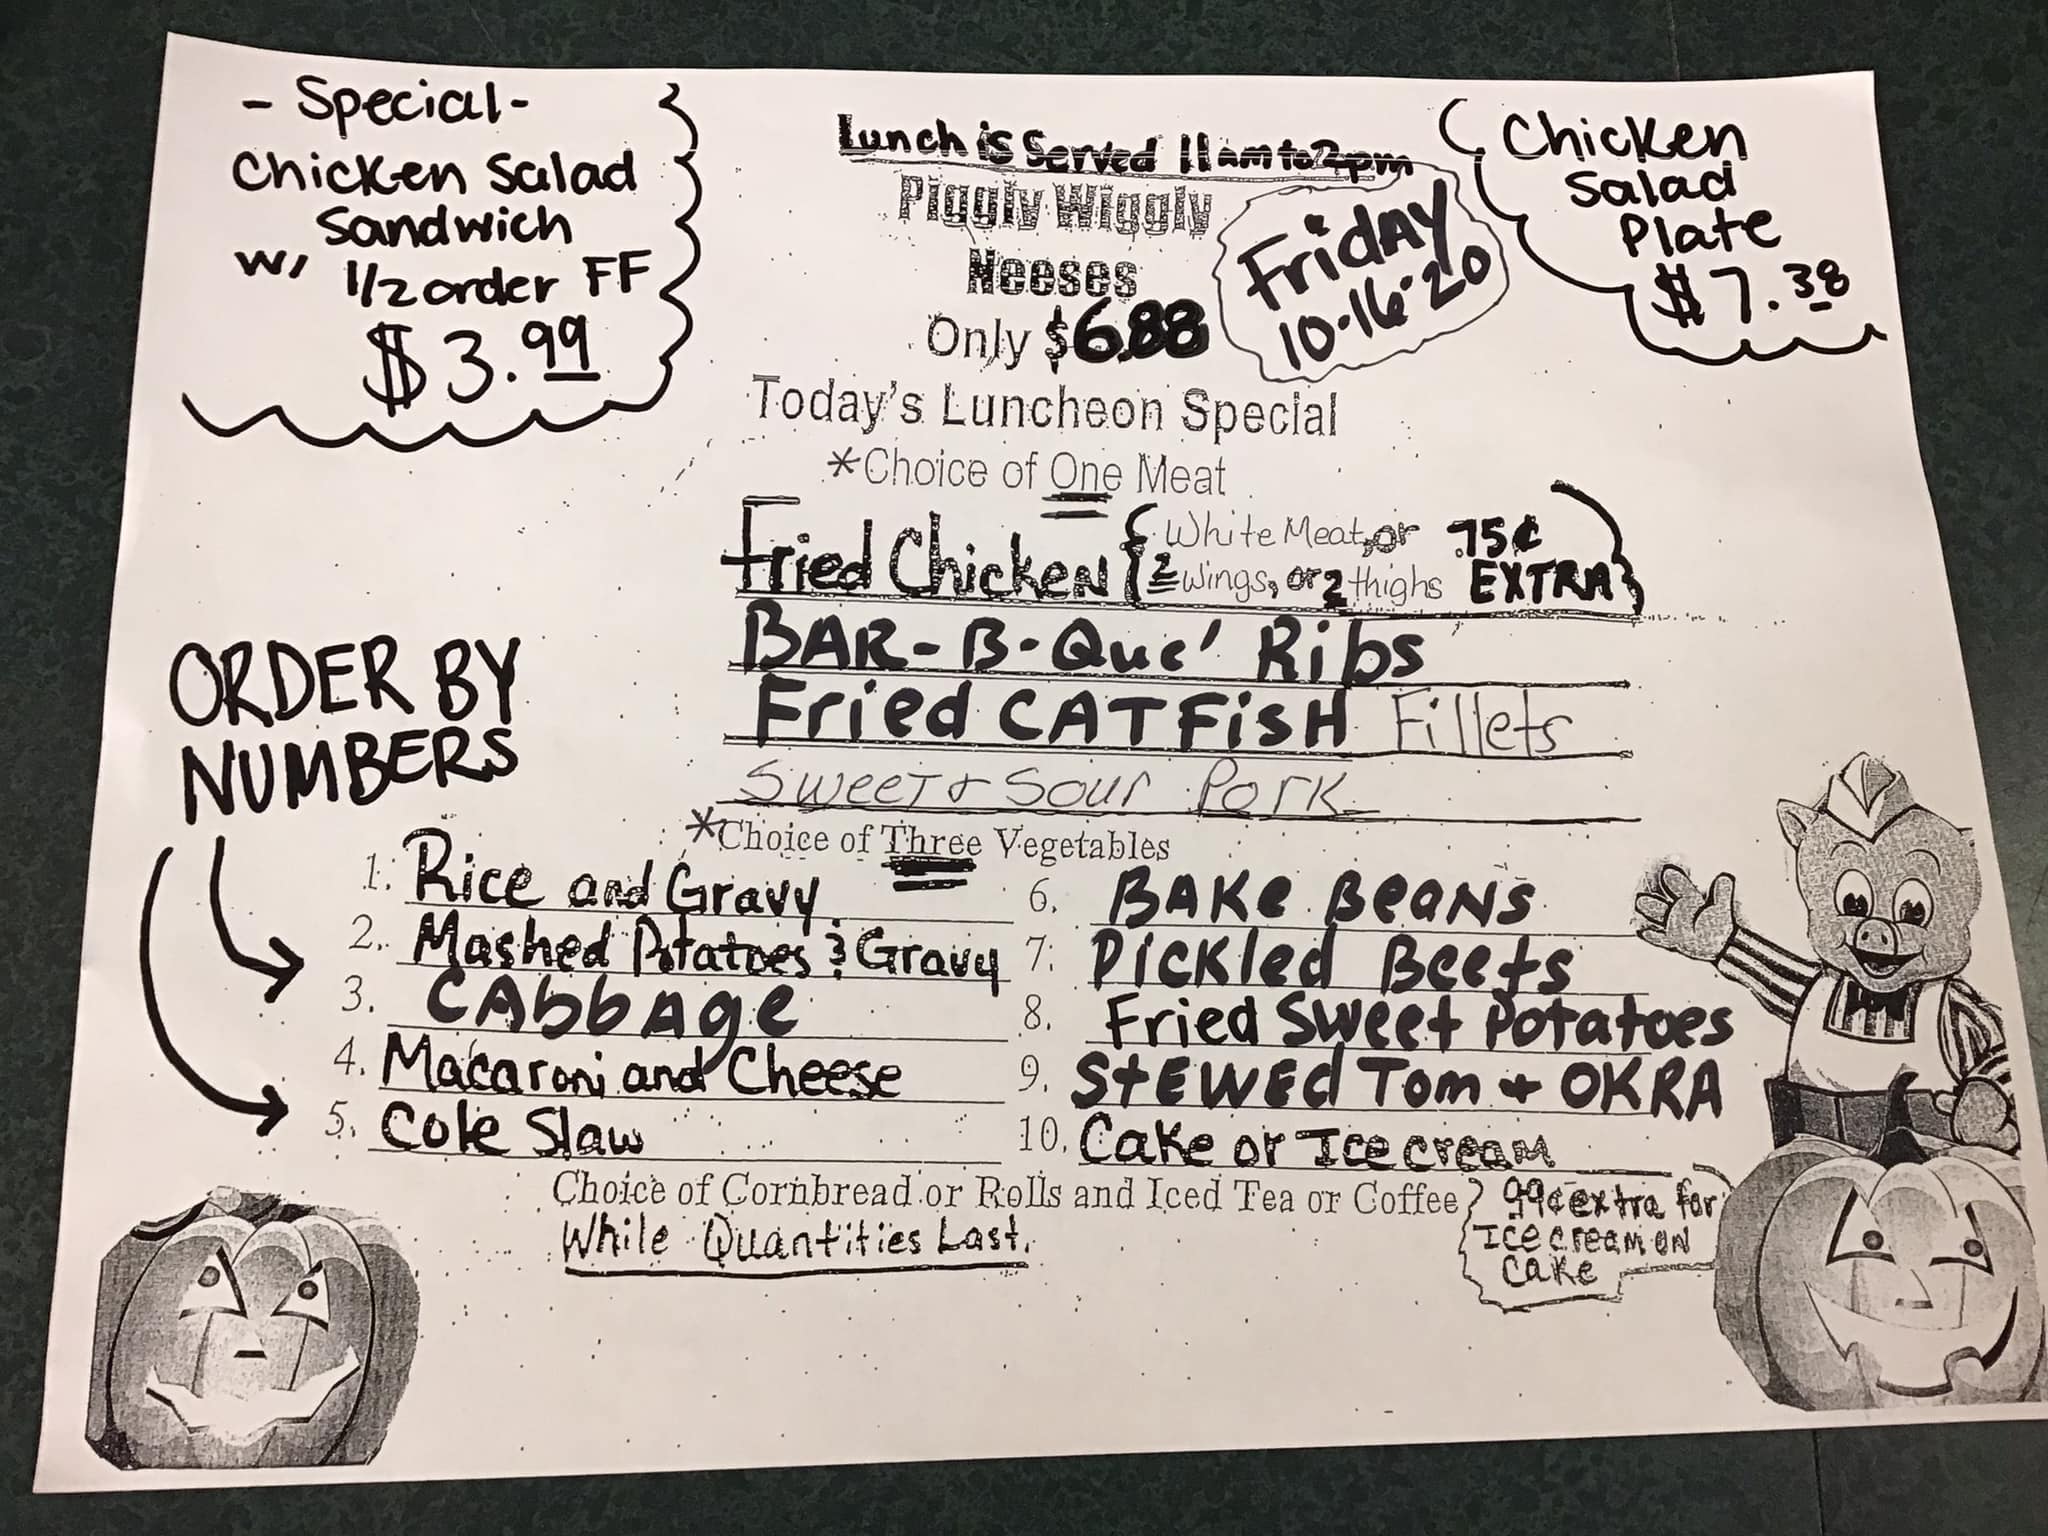 - Special -
Chicken Salad
Sandwich
w/ 1/2 order FF
$3.99
Lunch is Served 11am to 2pm
Piggly Wiggly
Neeses
Only $6.88
Friday
10-16-20
Chicken
Salad
Plate
$7.38
Today's Luncheon Special
*Choice of One Meat
Fried Chicken { White Meat, or 75¢
2 wings, or 2 thighs EXTRA }
BAR-B-Que' Ribs
Fried CATFiSH Fillets
Sweet + Sour Pork
ORDER BY
NUMBERS
*Choice of Three Vegetables
1. Rice and Gravy
2. Mashed Potatoes & Gravy
3. CAbbAge
4. Macaroni and Cheese
5. Cole Slaw
6. BAKe BeANS
7. Pickled Beets
8. Fried Sweet Potatoes
9. StEWEd Tom + OKRA
10. Cake or Ice cream
Choice of Cornbread or Rolls and Iced Tea or Coffee
While Quantities Last.
99¢ extra for
Ice cream on
Cake